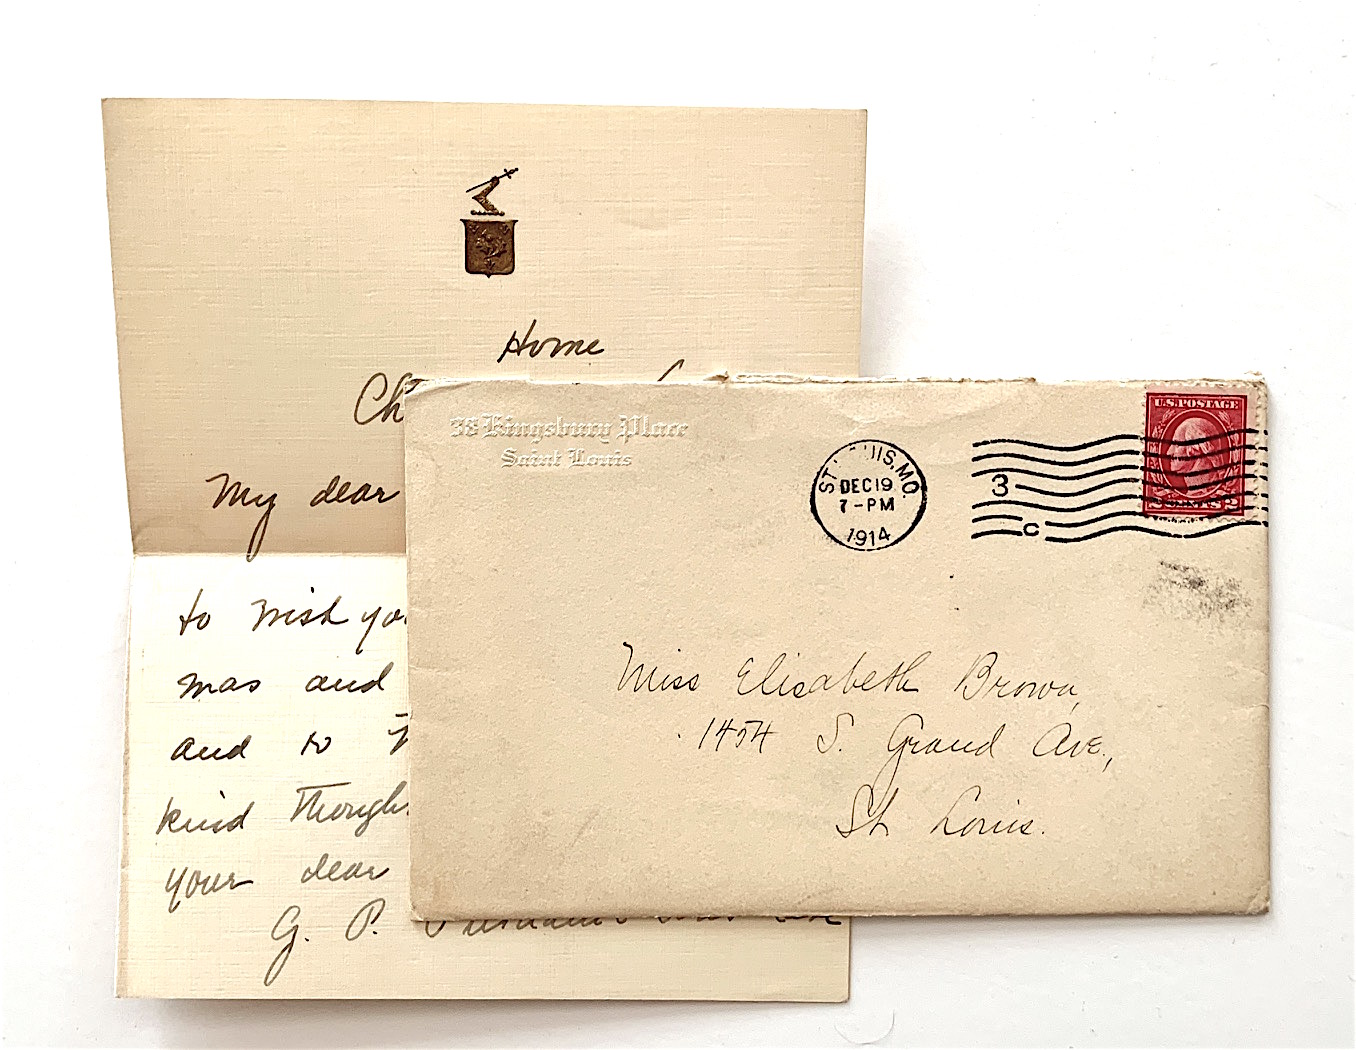 Home
Ch
My dear
to wish yo
mas and
and to
kind though
your dear
G. P.
38 Kingsbury Place
Saint Louis
ST. LOUIS, MO.
DEC 19
7-PM
1914
3
C
U.S. POSTAGE
2 CENTS 2
Miss Elisabeth Brown,
1454 S. Grand Ave.,
St Louis.